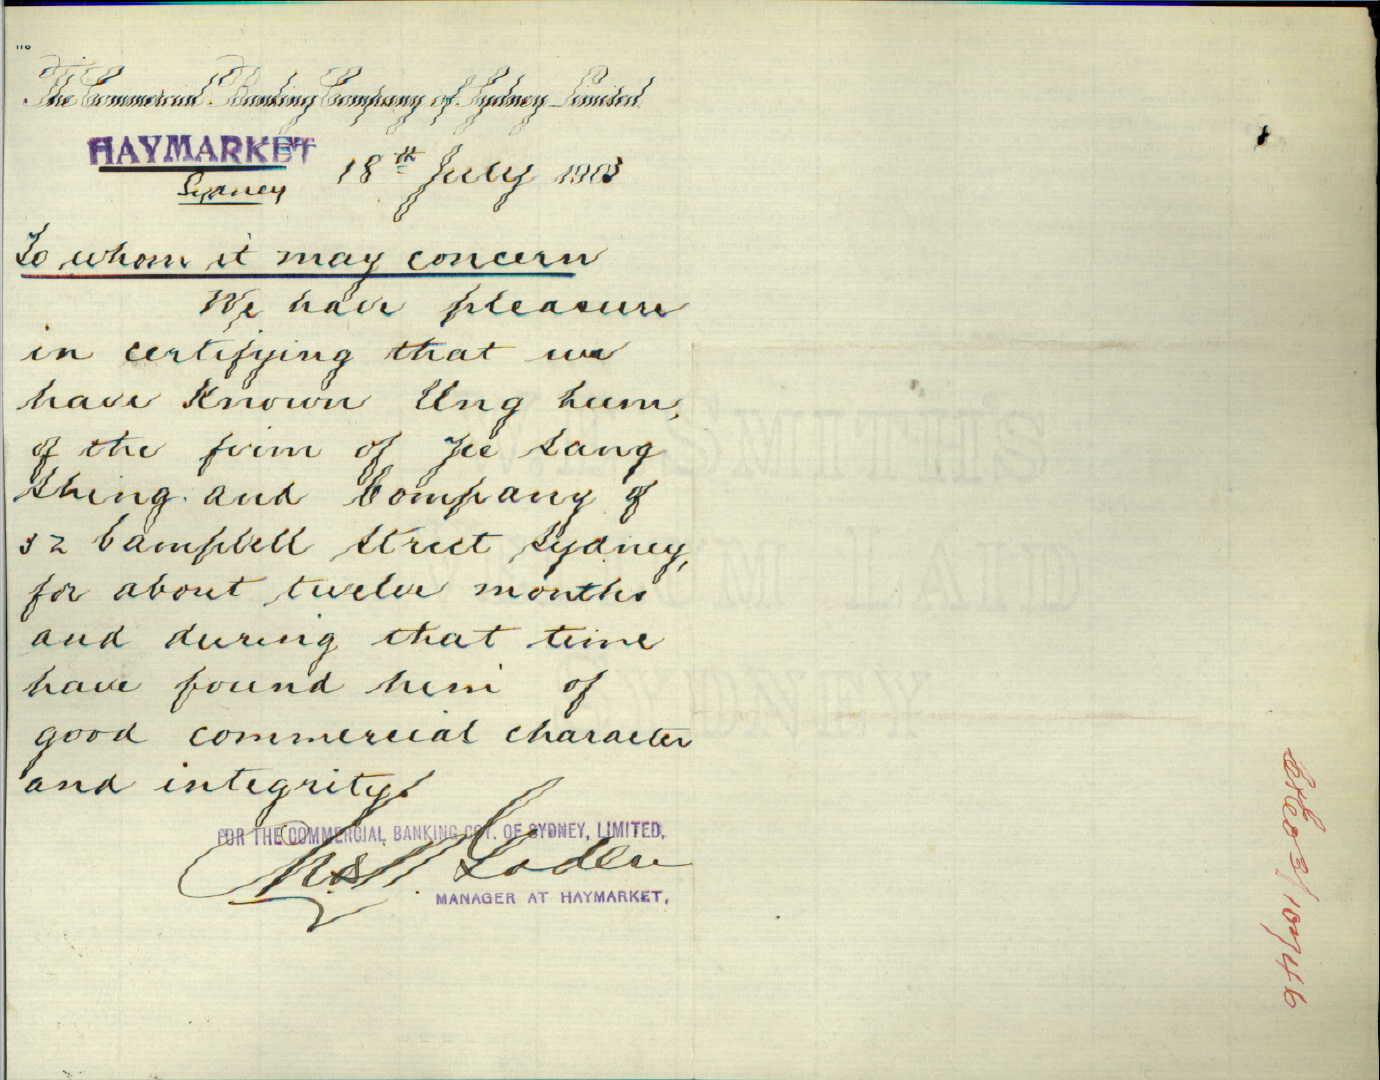 The Commercial Banking Company of Sydney Limited
HAYMARKET
Sydney
18th July 1903
To whom it may concern
We have pleasure
in certifying that we
have known Ung hum,
of the firm of Yee Sang
Shing and Company of
32 Campbell Street Sydney,
for about twelve months
and during that time
have found him of
good commercial character
and integrity.
FOR THE COMMERCIAL BANKING COY. OF SYDNEY, LIMITED,
MANAGER AT HAYMARKET,
W. E. SMITH'S
LAID
SYDNEY